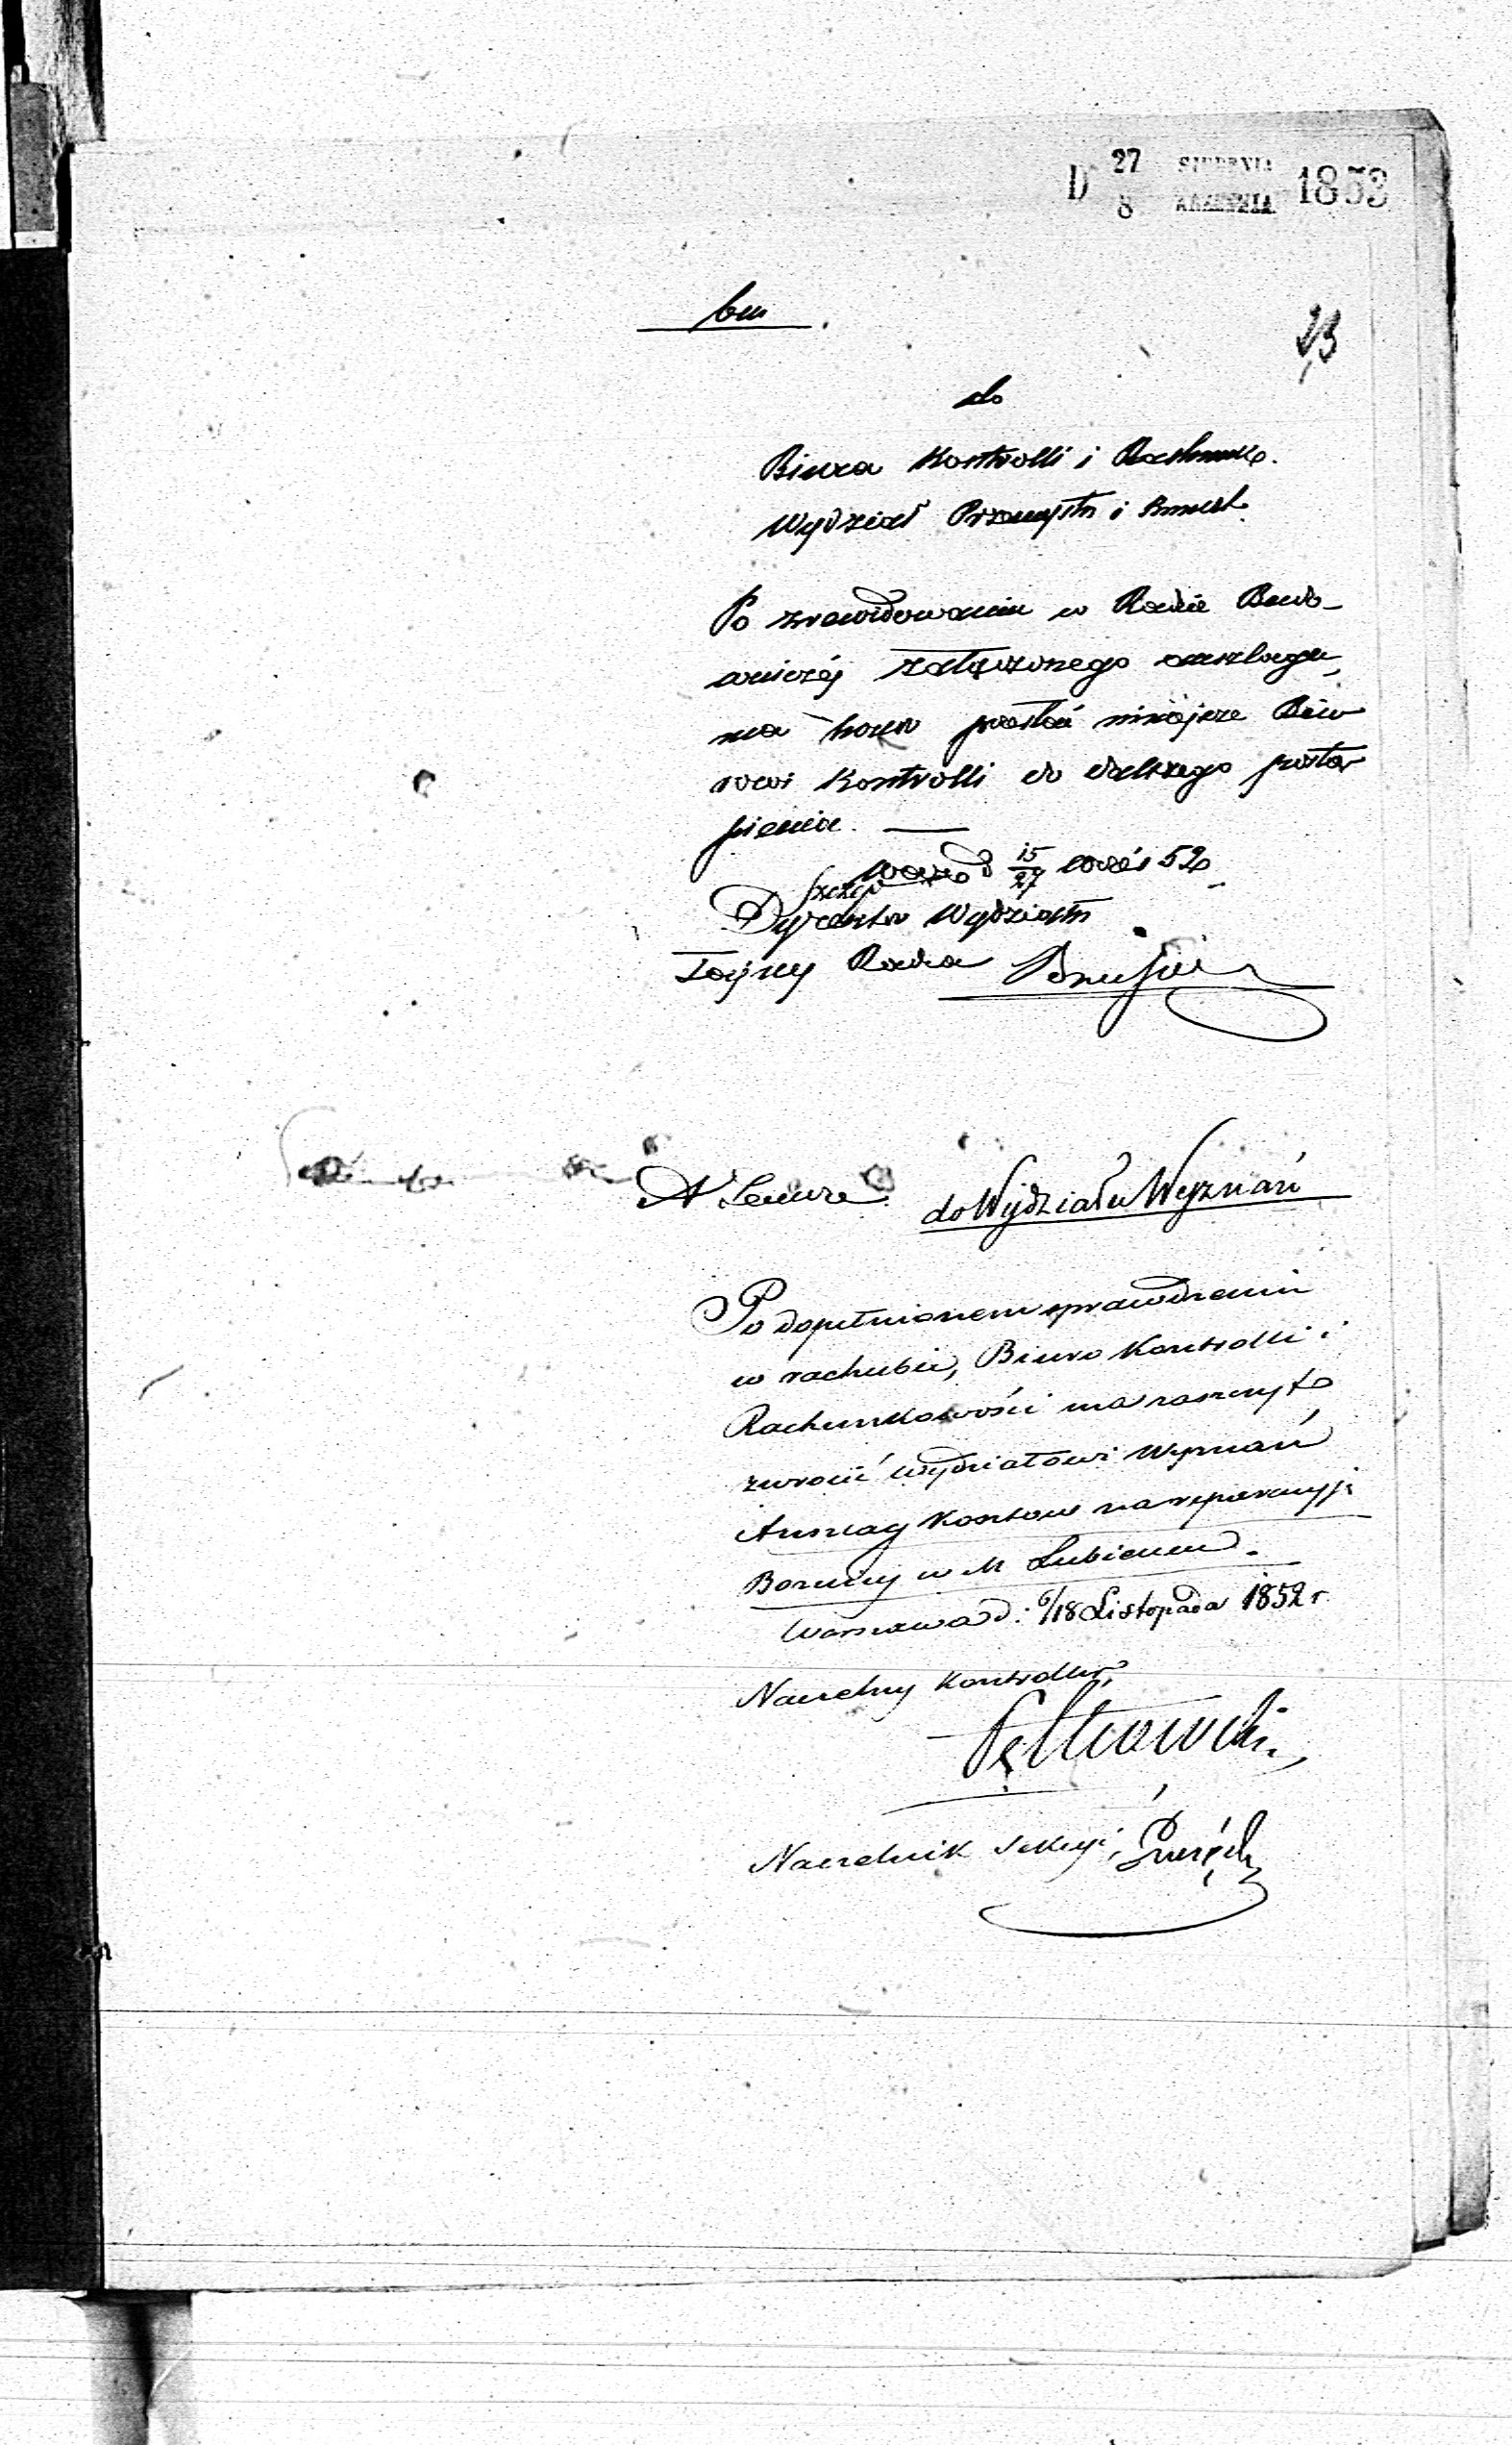 D 27 STYCZNIA 1853
8
bm
23
do
Biura Kontrolli i Rachunko.
Wydział Przemysłu i Kunszt.
Po zrewidowaniu w Radzie Budo-
wniczéj załączonego anszlagu,
ma honor przesłać niniejsze Biu
rowi Kontrolli do dalszego postą
pienia. —
Warsz d 15/27 Wrześ 52
Dyrektor Wydziału
Tajny Radca
do Wydziału Wyznań
Po dopełnionem sprawdzeniu
w rachubie, Biuro Kontrolli i
Rachunkowości ma zaszczyt
zwrócić Wydziałowi Wyznań
Anszlag Kosztow na reparacyją
Boznicy w M Lubieniu.
Warszawa d: 6/18 Listopada 1852 r
Naczelny Kontroller,
Naczelnik Sekcyi,